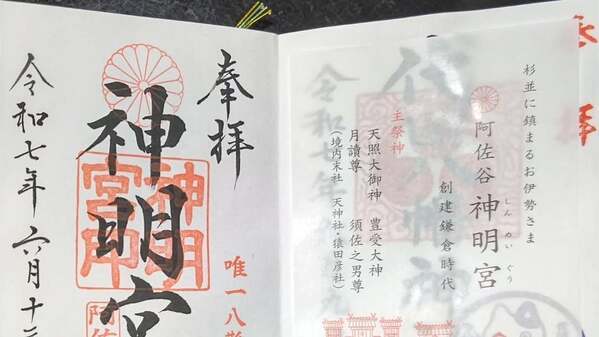 奉拝
神明宮
神明宮印
阿佐
唯一八
令和七年六月十二
杉並に鎮まるお伊勢さま
阿佐谷 神明宮
しんめいぐう
創建鎌倉時代
主祭神
天照大御神 豊受大神
月讀尊 須佐之男尊
(境内末社 天神社・猿田彦社)
拝